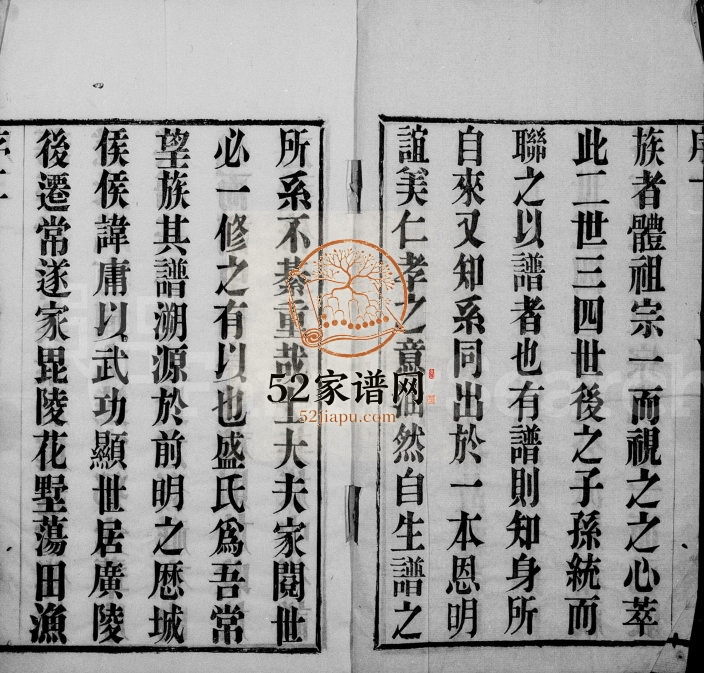 族者體祖宗一而視之之心萃
此二世三四世後之子孫統而
聯之以譜者也有譜則知身所
自來又知系同出於一本恩明
誼美仁孝之意然自生譜之
所系不綦重哉士大夫家閱世
必一修之有以也盛氏爲吾常
望族其譜溯源於前明之歷城
侯侯諱庸以武功顯世居廣陵
後遷常遂家毘陵花墅蕩田漁
52家谱网
52jiapu.com